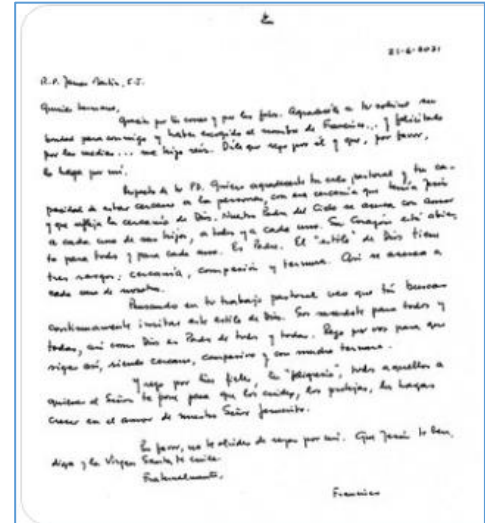 21-6-2021
R.P. James Martin, S.J.
Querido hermano,
Gracias por tu correo y por las fotos. Agradecele a tu sobrino su
bondad para conmigo y haber escogido el nombre de Francisco... y felicitalo
por las medias... me hizo reír. Dile que rezo por él y que, por favor,
lo haga por mí.
Respecto de tu PD. Quiero agradecerte tu celo pastoral y tu ca-
pacidad de estar cercano a las personas, con esa cercanía que tenía Jesús
y que refleja la cercanía de Dios. Nuestro Padre del Cielo se acerca con amor
a cada uno de sus hijos, a todos y a cada uno. Su Corazón está abier
to para todos y para cada uno. Es Padre. El "estilo" de Dios tiene
tres rasgos: cercanía, compasión y ternura. Así se acerca a
cada uno de nosotros.
Pensando en tu trabajo pastoral veo que tú buscas
continuamente imitar este estilo de Dios. Sos sacerdote para todos y
todas, así como Dios es Padre de todos y todas. Rezo por vos para que
sigas así, siendo cercano, compasivo y con mucha ternura.
Y rezo por tus fieles, tu "feligresía", todos aquellos a
quienes el Señor te pone para que los cuides, los protejas, los hagas
crecer en el amor de nuestro Señor Jesucristo.
Por favor, no te olvides de rezar por mí. Que Jesús te ben,
diga y la Virgen Santa te cuide.
Fraternalmente,
Francisco